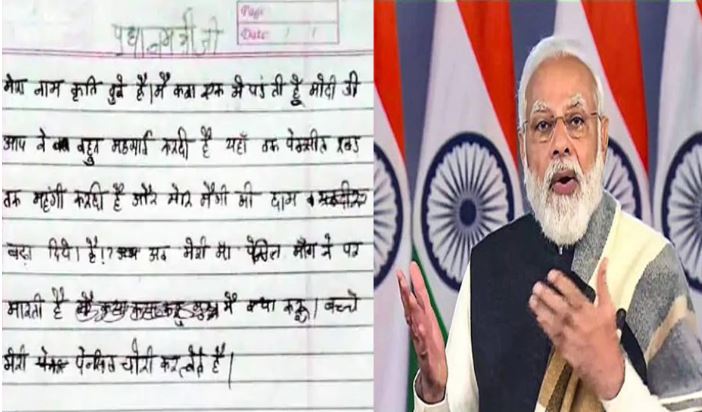 Page
Date / /
प्रधानमंत्री जी
मेरा नाम कृति दुबे है। मैं कक्षा एक मे पढती हूँ मोदी जी
आप ने बहुत महगाई करदी है यहाँ तक पेन्सील रबड
तक महंगी करदी है और मेरि मैगी की दाम भी
बढ़ा दिये। है!? अब मेरी माँ पेंसिल माँग ने पर
मारती है मैं क्या करू। बच्चे
मेरी पेन्सिल चोरी कर लेते है।